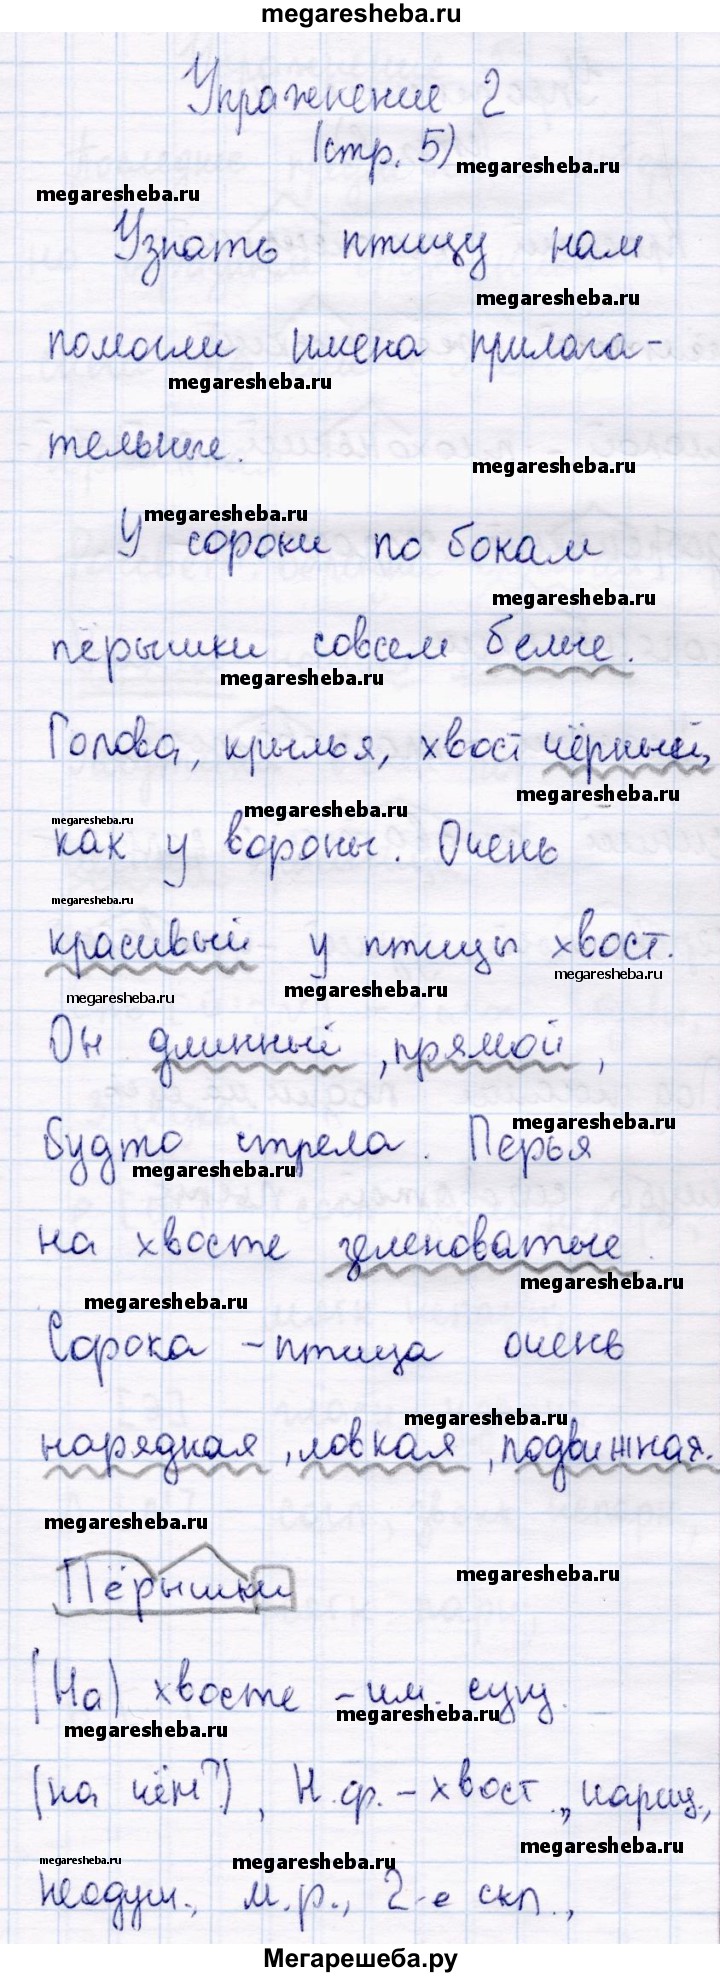 megaresheba.ru
Упражнение 2
(стр. 5) megaresheba.ru
megaresheba.ru
Узнать птицу нам
megaresheba.ru
помогли имена прилага-
megaresheba.ru
тельные.
megaresheba.ru
megaresheba.ru
У сороки по бокам
megaresheba.ru
пёрышки совсем белые.
megaresheba.ru
Голова, крылья, хвост чёрный,
megaresheba.ru
megaresheba.ru megaresheba.ru
как у вороны. Очень
megaresheba.ru
красивый у птицы хвост.
megaresheba.ru megaresheba.ru megaresheba.ru
Он длинный, прямой,
megaresheba.ru
будто стрела. Перья
megaresheba.ru
на хвосте зеленоватые.
megaresheba.ru
megaresheba.ru
Сорока - птица очень
megaresheba.ru
нарядная, ловкая, подвижная.
megaresheba.ru
megaresheba.ru
Пёрышки
(На) хвосте - им. сущ.
megaresheba.ru megaresheba.ru
(на чём?), Н.ф. - хвост., нариц.,
megaresheba.ru
megaresheba.ru megaresheba.ru
неодуш., м.р., 2-е скл.,
Мегарешеба.ру